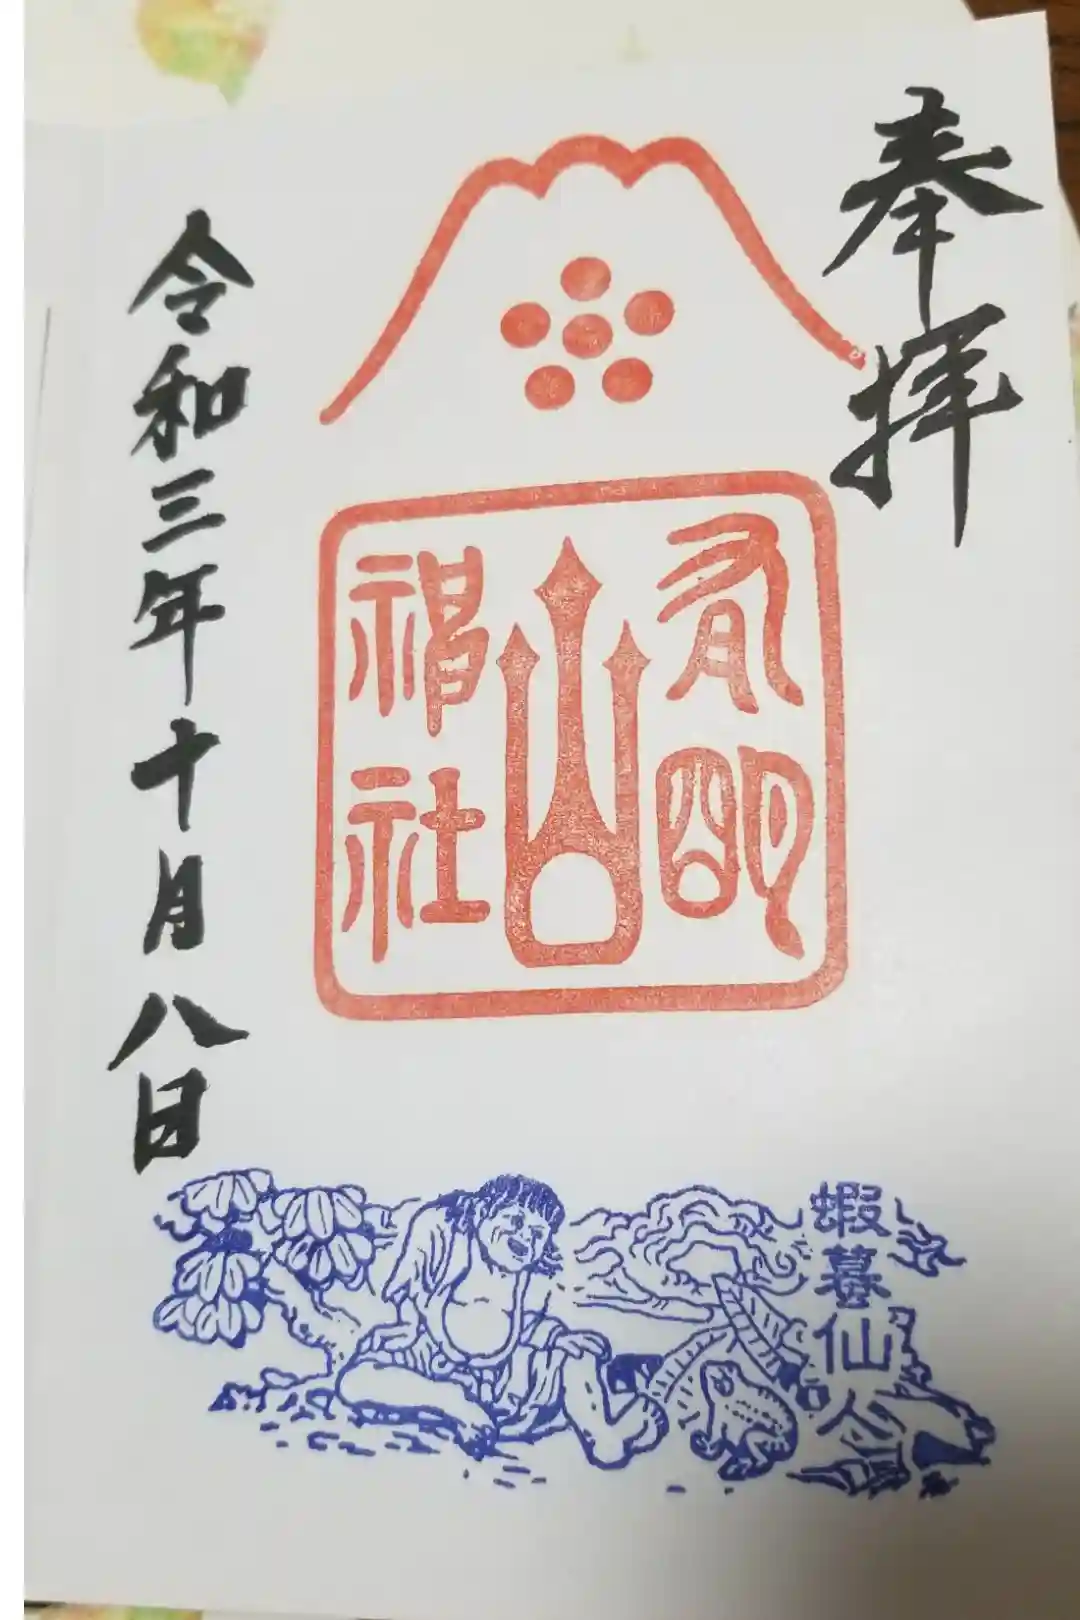 奉拝
有明
山
神社
令和三年十月八日
蝦蟇仙人